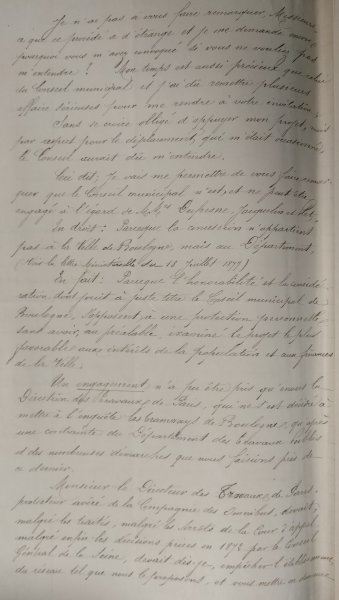 Je n'ai pas à vous faire remarquer, Messieurs,
ce que ce procédé a d'étrange et je me demande encore
pourquoi vous m'avez convoqué si vous ne vouliez pas
m'entendre ? Mon temps est aussi précieux que celui
du Conseil municipal et j'ai dû remettre plusieurs
affaires sérieuses pour me rendre à votre invitation.
Sans se croire obligé d'appuyer mon projet, mais
par respect pour le déplacement qui m'était occasionné,
le Conseil aurait dû m'entendre.
Ceci dit, je vais me permettre de vous faire remar-
quer que le Conseil municipal n'est, et ne peut être
engagé à l'égard de MM. Dufresne, Jacquelin et
En droit : Parceque la concession n'appartient
pas à la Ville de Boulogne, mais au Département,
(Voir la lettre Ministérielle du 13 Juillet 1877)
En fait : Parceque l'honorabilité et la considé-
ration dont jouit à juste titre le Conseil municipal de
Boulogne, s'opposent à une protection personnelle,
sans avoir, au préalable, examiné le projet le plus
favorable aux intérêts de la population et aux finances
de la Ville.
Un engagement n'a pu être pris qu'envers la
Direction des Travaux de Paris, qui ne s'est décidée à
mettre à l'enquête les tramways de Boulogne, qu'après
une contrainte du Département des Travaux publics
et des nombreuses démarches que nous faisions près de
ce dernier.
Monsieur le Directeur des Travaux de Paris,
protecteur avéré de la Compagnie des Omnibus, devait,
malgré les traités, malgré les arrêts de la Cour d'appel,
malgré enfin les décisions prises en 1872 par le Conseil
Général de la Seine, devait dis-je, empêcher l'établissement
du réseau tel que nous le proposons, et vous mettre en demeure